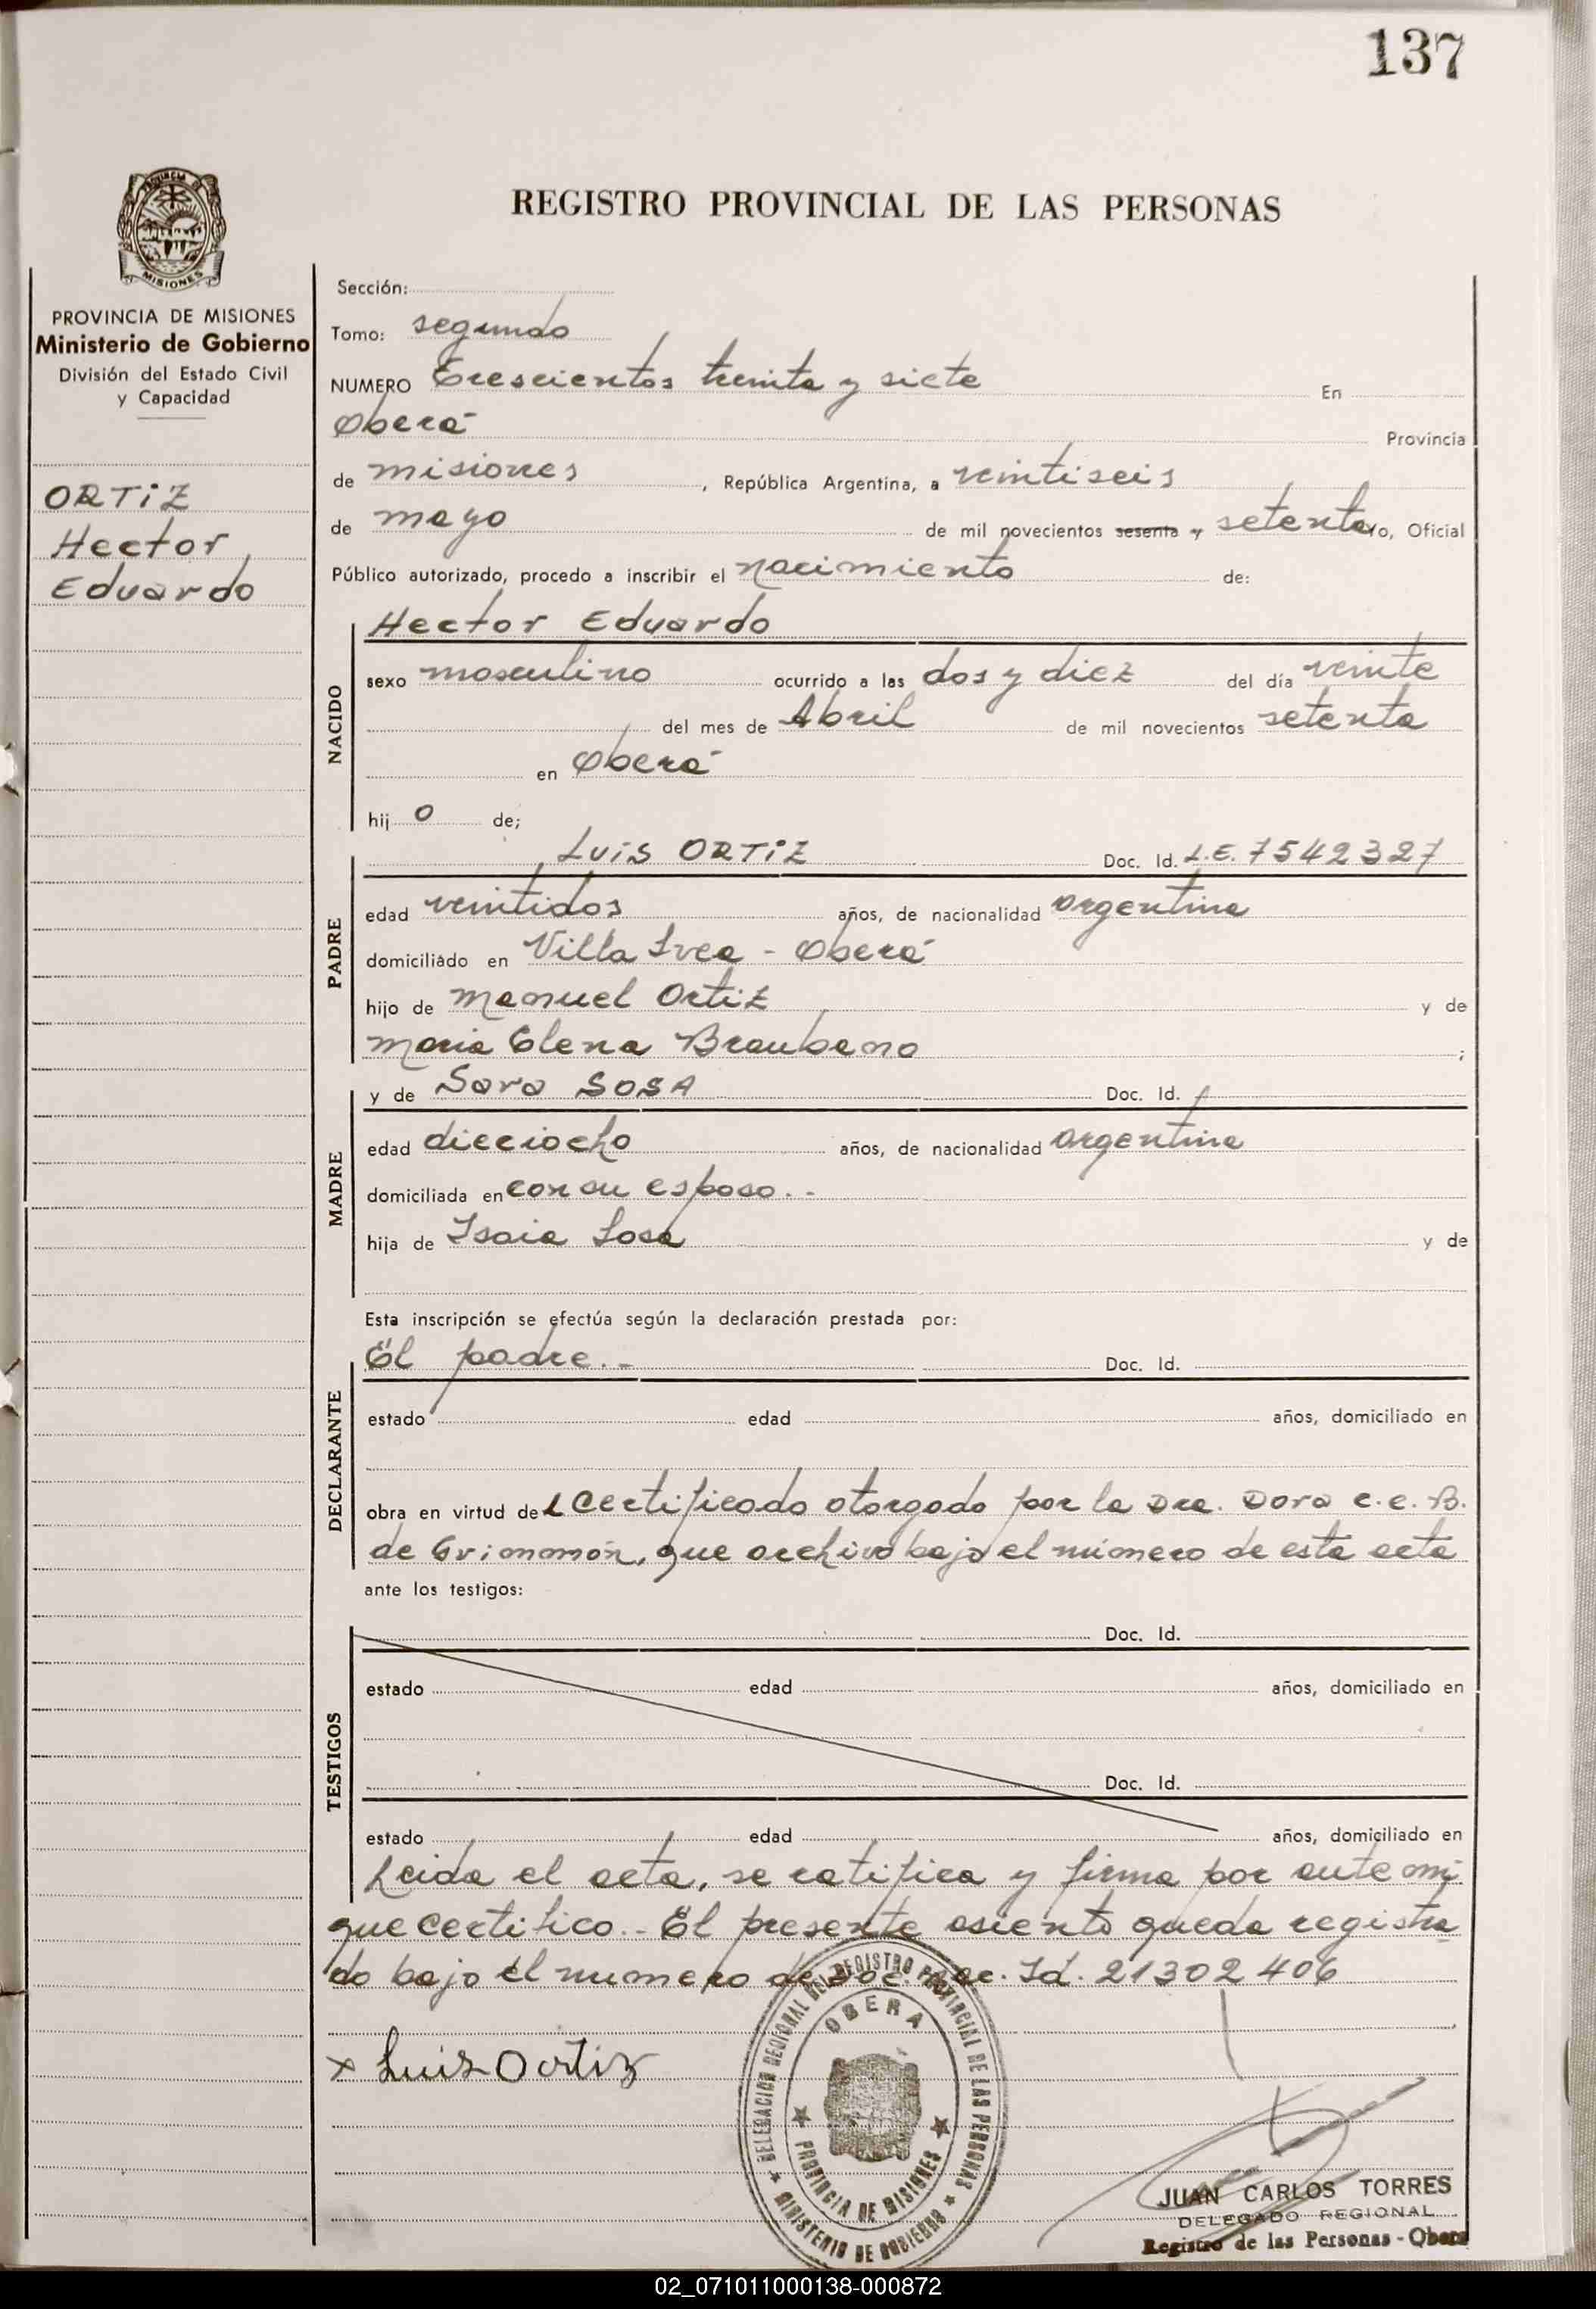 137
REGISTRO PROVINCIAL DE LAS PERSONAS
PROVINCIA DE MISIONES
Ministerio de Gobierno
División del Estado Civil
y Capacidad
ORTIZ
Hector
Eduardo
Sección:
Tomo: segundo
NUMERO Trescientos treinta y siete En
Oberá Provincia
de misiones, República Argentina, a veintiseis
de mayo de mil novecientos sesenta y setenta yo, Oficial
Público autorizado, procedo a inscribir el nacimiento de:
NACIDO
Hector Eduardo
sexo masculino ocurrido a las dos y diez del día veinte
del mes de Abril de mil novecientos setenta
en Oberá
hij o de;
PADRE
Luis ORTIZ Doc. Id. L.E. 7542327
edad veintidos años, de nacionalidad argentina
domiciliado en Villa Svea - Oberá
hijo de Manuel Ortiz y de
Maria Elena ;
MADRE
y de Sara SOSA Doc. Id.
edad dieciocho años, de nacionalidad argentina
domiciliada en con su esposo.-
hija de Isaia Sosa y de
Esta inscripción se efectúa según la declaración prestada por:
DECLARANTE
El padre.- Doc. Id.
estado edad años, domiciliado en
obra en virtud del certificado otorgado por la Dra. Dora c.e.B.
de que archivo bajo el número de esta acta
ante los testigos:
TESTIGOS
Doc. Id.
estado edad años, domiciliado en
Doc. Id.
estado edad años, domiciliado en
Leida el acta, se ratifica y firma por ante mi
que certifico.- El presente asiento queda registra
do bajo el numero de Doc. Nac. Id. 21302406
x Luis Ortiz
DELEGACION REGIONAL DEL REGISTRO PROVINCIAL DE LAS PERSONAS
OBERA
PROVINCIA DE MISIONES
MINISTERIO DE GOBIERNO
JUAN CARLOS TORRES
DELEGADO REGIONAL
Registro de las Personas - Oberá
02_071011000138-000872